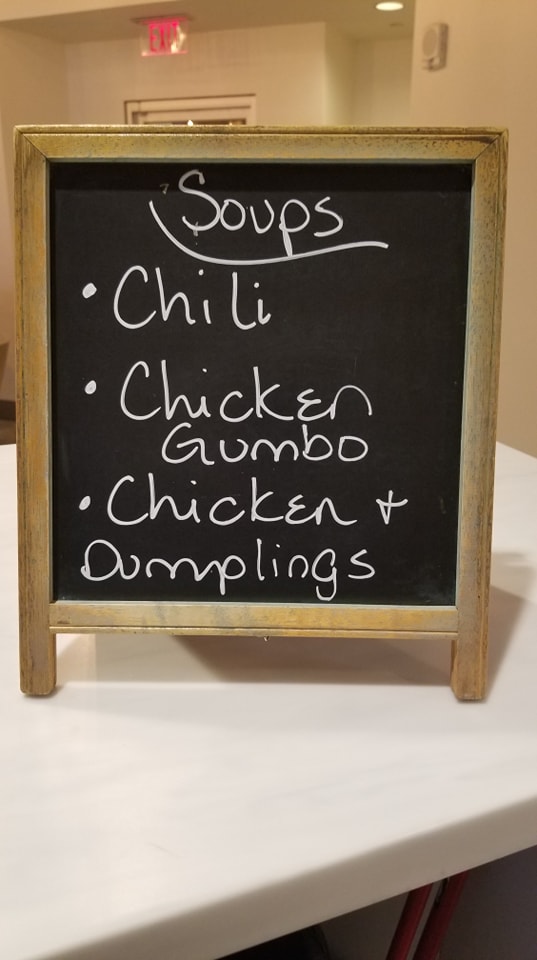 EXIT
Soups
• Chili
• Chicken
Gumbo
• Chicken +
Dumplings